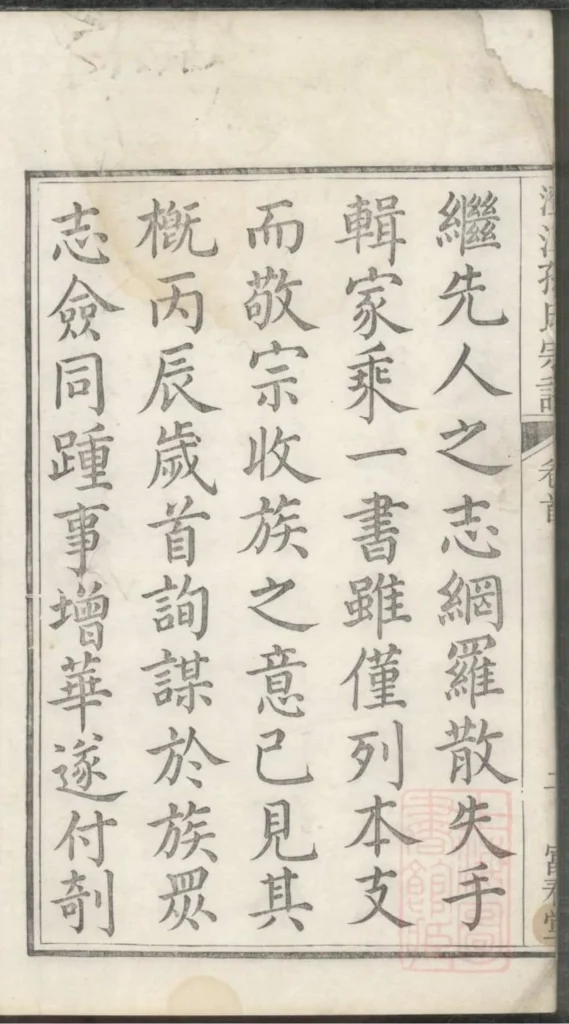 繼先人之志網羅散失手
輯家乘一書雖僅列本支
而敬宗收族之意已見其
概丙辰歲首詢謀於族眾
志僉同踵事增華遂付剞
孫氏宗譜
卷首